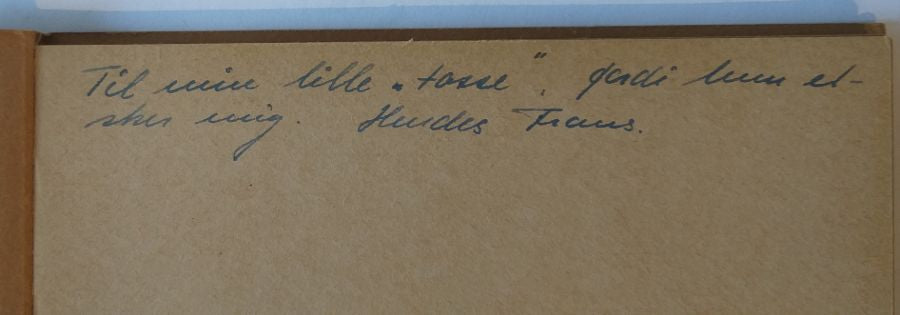 Til min lille „tosse". fordi hun el-
sker mig. Hendes Frans.